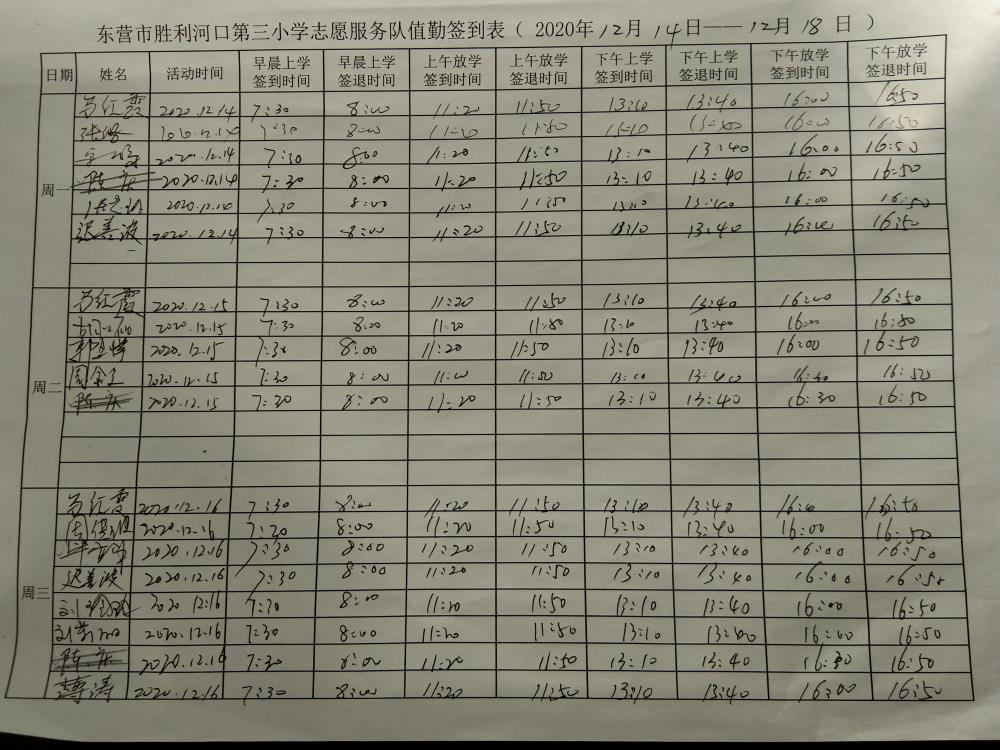 东营市胜利河口第三小学志愿服务队值勤签到表（2020年12月14日——12月18日）
日期 姓名 活动时间 早晨上学签到时间 早晨上学签退时间 上午放学签到时间 上午放学签退时间 下午上学签到时间 下午上学签退时间 下午放学签到时间 下午放学签退时间
周一
红霞 2020.12.14 7:30 8:00 11:20 11:50 13:10 13:40 16:00 16:50
张 2020.12.14 7:30 8:00 11:20 11:50 13:40 16:00 16:50
2020.12.14 7:30 8:00 11:20 11:50 13:10 13:40 16:00 16:50
陈庆 2020.12.14 7:30 8:00 11:20 11:50 13:10 13:40 16:00 16:50
7:30 8:00 11:20 11:50 13:10 13:40 16:00 16:50
迟善波 2020.12.14 7:30 8:00 11:20 11:50 13:10 13:40 16:00 16:50
周二
红霞 2020.12.15 7:30 8:00 11:20 11:50 13:10 13:40 16:00 16:50
2020.12.15 7:30 8:00 11:20 11:50 13:10 13:40 16:00 16:50
郭 2020.12.15 7:30 8:00 11:20 11:50 13:10 13:40 16:00 16:50
周金玉 2020.12.15 7:30 8:00 11:50 13:40 16:30 16:50
陈庆 2020.12.15 7:30 8:00 11:20 11:50 13:10 13:40 16:30 16:50
周三
红霞 2020.12.16 7:30 8:00 11:20 11:50 13:10 13:40 16:00 16:50
2020.12.16 7:30 8:00 11:20 11:50 13:10 13:40 16:00 16:50
2020.12.16 7:30 8:00 11:20 11:50 13:10 13:40 16:00 16:50
迟善波 2020.12.16 7:30 8:00 11:20 11:50 13:10 13:40 16:00 16:50
刘 2020 12.16 7:30 8:00 11:20 11:50 13:10 13:40 16:00 16:50
刘 2020.12.16 7:30 8:00 11:20 11:50 13:10 13:40 16:00 16:50
陈庆 2020.12.16 7:30 8:00 11:20 11:50 13:10 13:40 16:30 16:50
薄涛 2020.12.16 7:30 8:00 11:20 11:50 13:10 13:40 16:00 16:50